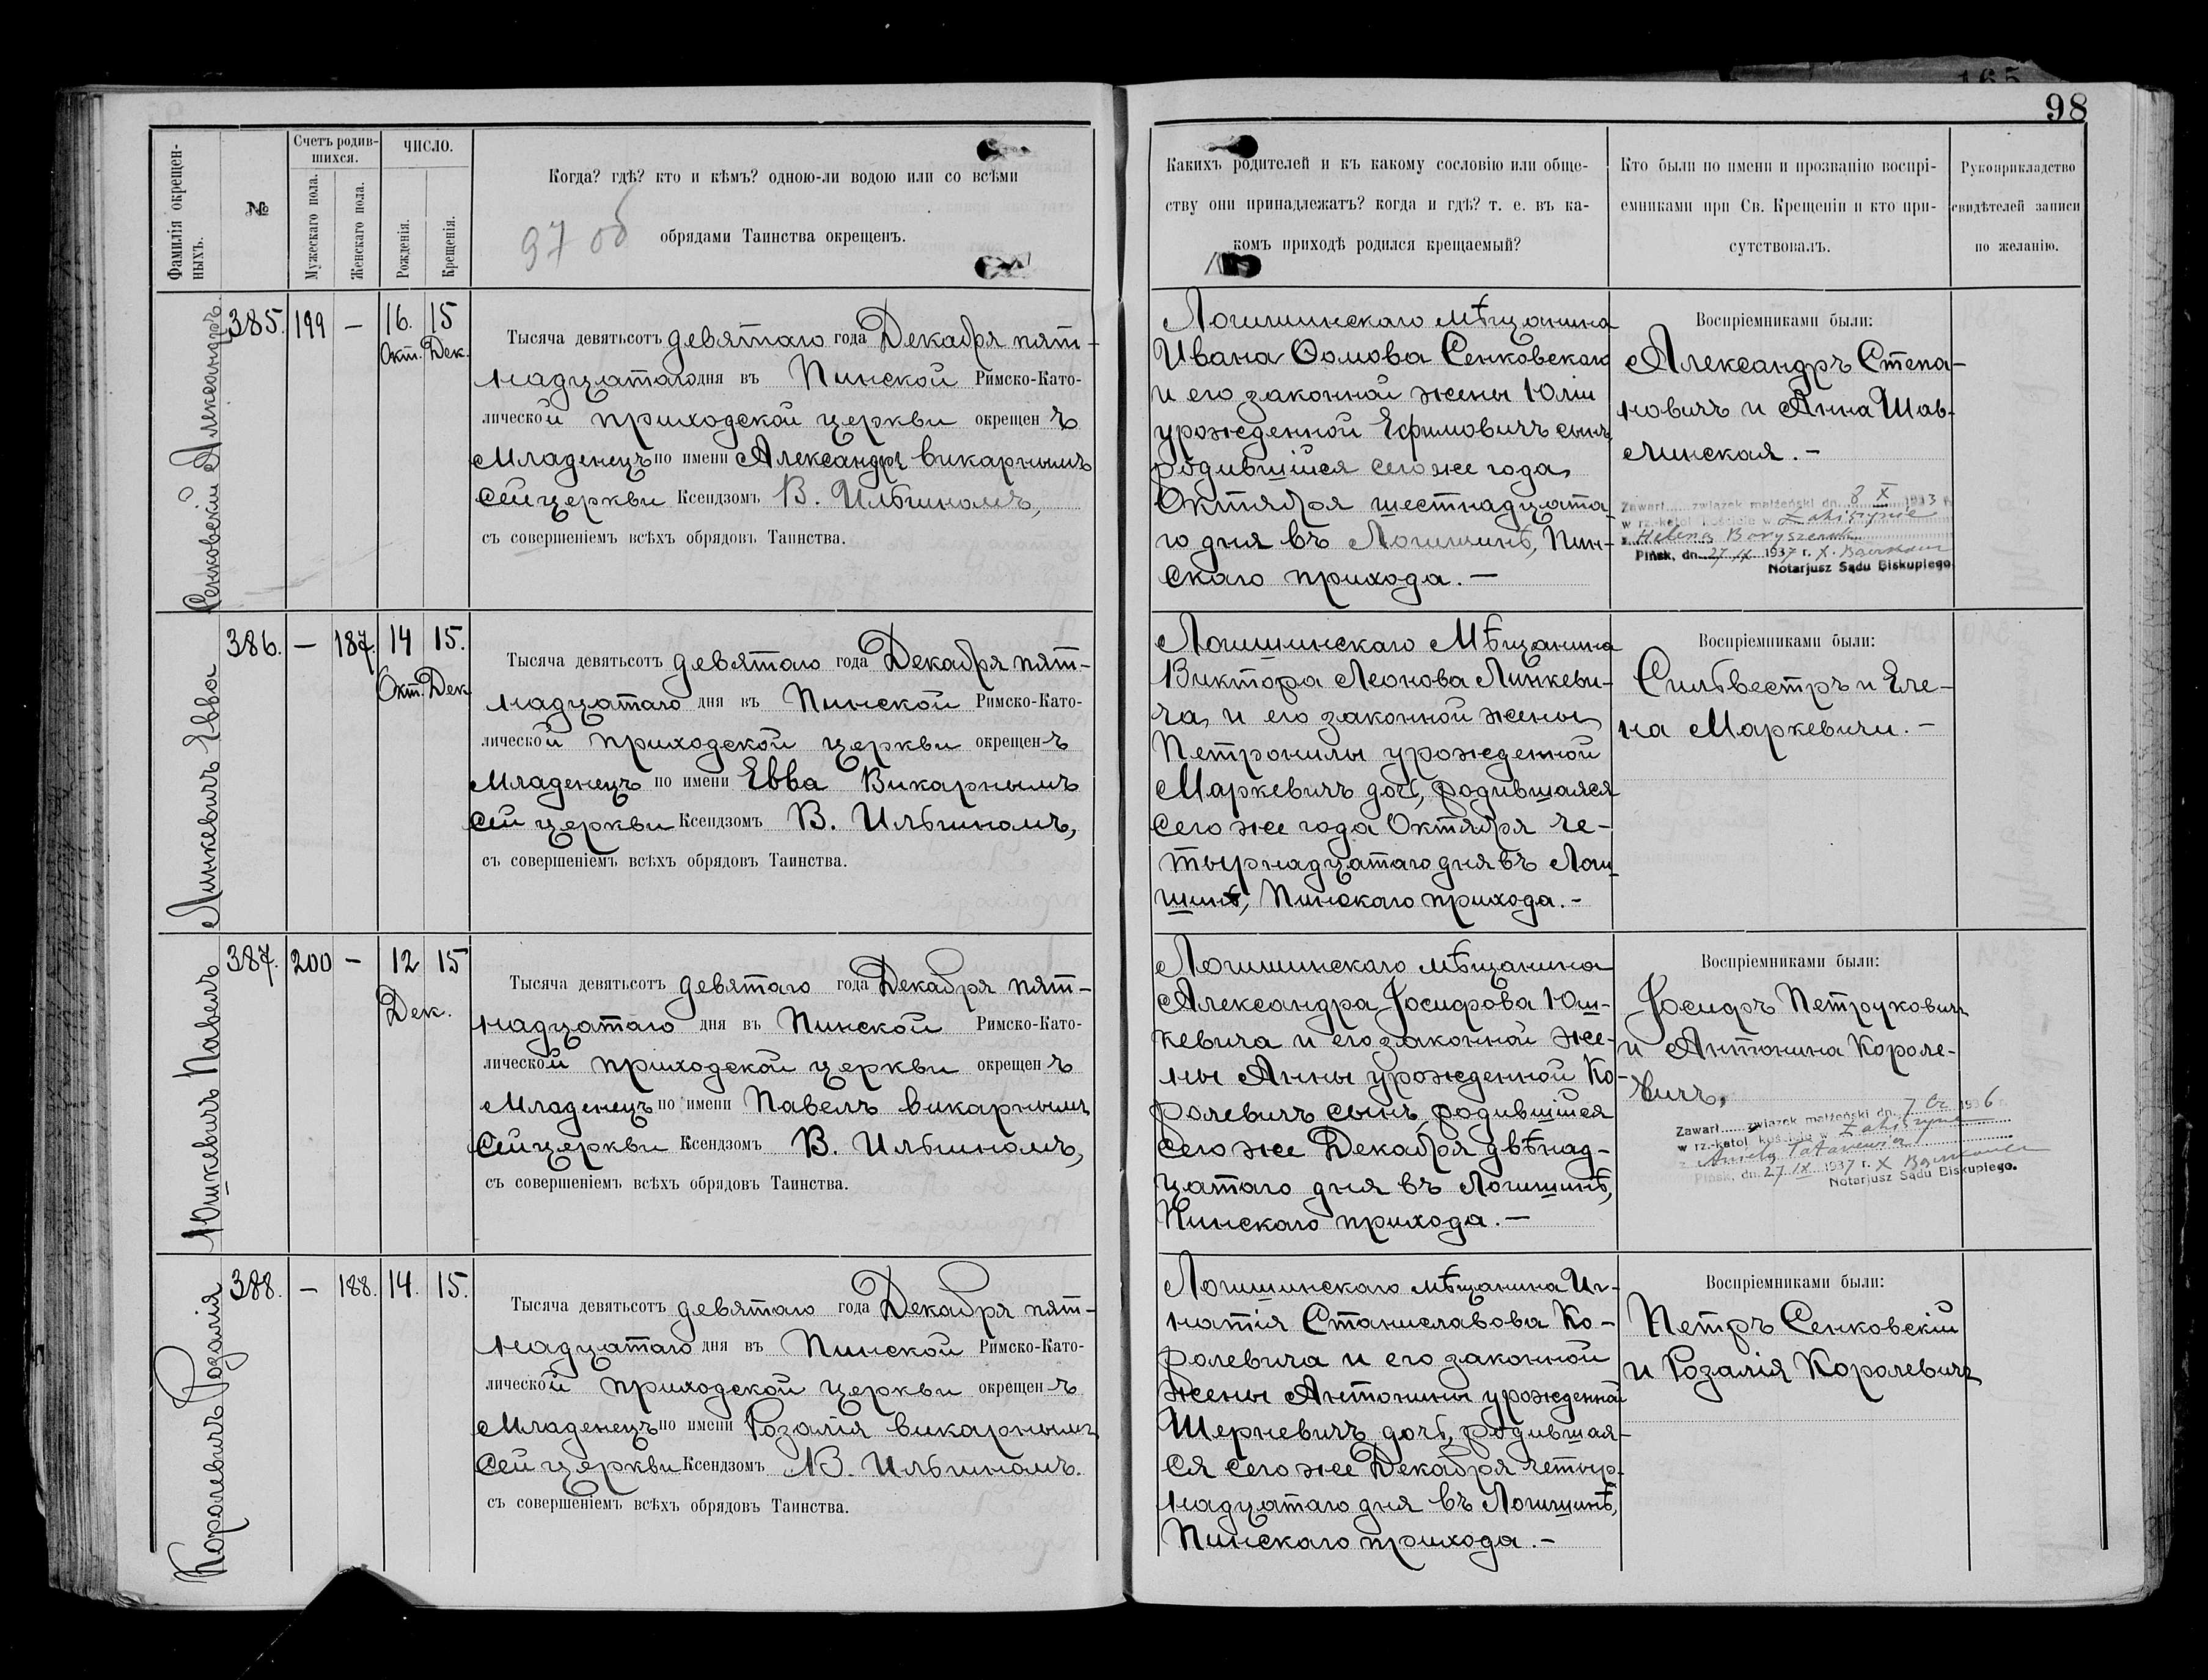 165
98
Фамилія окрещен-
ныхъ.
№
Счетъ родив-
шихся.
Мужескаго пола.
Женскаго пола.
ЧИСЛО.
Рожденія.
Крещенія.
Когда? гдѣ? кто и кѣмъ? одною-ли водою или со всѣми
обрядами Таинства окрещенъ.
97 об
Какихъ родителей и къ какому сословію или обще-
ству они принадлежатъ? когда и гдѣ? т. е. въ ка-
комъ приходѣ родился крещаемый?
Кто были по имени и прозванію воспрі-
емниками при Св. Крещеніи и кто при-
сутствовалъ.
Рукоприкладство
свидѣтелей записи
по желанію.
Сенковскій Александръ.
385. 199 — 16. 15
Окт. Дек.
Тысяча девятьсотъ девятаго года Декабря пят-
надцатаго дня въ Пинской Римско-Като-
лической приходской церкви окрещенъ
Младенецъ по имени Александръ викарнымъ
сей церкви Ксендзомъ В. Ильгиномъ,
съ совершеніемъ всѣхъ обрядовъ Таинства.
Логишинскаго мѣщанина
Ивана Ѳомова Сенковскаго
и его законной жены Юліи
урожденной Ефимовичъ сынъ,
родившійся сего же года
Октября шестнадцата-
го дня въ Логишинѣ, Пин-
скаго прихода. —
Воспріемниками были:
Александръ Степа-
новичъ и Анна Шав-
линская. —
Zawarł związek małżeński dn. 8 X 1933 r.
w rz.-katol. kościele w Łohiszynie
z Heleną
Pińsk, dn. 27 IX 1937 r. X.
Notarjusz Sądu Biskupiego
Линкевичъ Евва
386. — 187. 14 15.
Окт. Дек
Тысяча девятьсотъ девятаго года Декабря пят-
надцатаго дня въ Пинской Римско-Като-
лической приходской церкви окрещенъ
Младенецъ по имени Евва Викарнымъ
сей церкви Ксендзомъ В. Ильгиномъ,
съ совершеніемъ всѣхъ обрядовъ Таинства.
Логишинскаго Мѣщанина
Виктора Леонова Линкеви-
ча, и его законной жены
Петронилы урожденной
Маркевичъ дочь, родившаяся
сего же года Октября че-
тырнадцатаго дня въ Логи-
шинѣ, Пинскаго прихода. —
Воспріемниками были:
Сильвестръ и Еле-
на Маркевичи. —
Юшкевичъ Павелъ
387. 200 — 12 15
Дек.
Тысяча девятьсотъ девятаго года Декабря пят-
надцатаго дня въ Пинской Римско-Като-
лической приходской церкви окрещенъ
Младенецъ по имени Павелъ викарнымъ
сей церкви Ксендзомъ В. Ильгиномъ,
съ совершеніемъ всѣхъ обрядовъ Таинства.
Логишинскаго мѣщанина
Александра Іосифова Юш-
кевича и его законной же-
ны Анны урожденной Ко-
ролевичъ сынъ, родившійся
сего же Декабря двѣнад-
цатаго дня въ Логишинѣ,
Пинскаго прихода. —
Воспріемниками были:
Іосифъ Петруковичъ
и Антонина Короле-
вичъ,
Zawarł związek małżeński dn. 7 1936
w rz.-katol. kościele w Łohiszynie
z Anielą Tatarewicz
Pińsk, dn. 27 IX 1937 r. X
Notarjusz Sądu Biskupiego.
Королевичъ Розалія
388. — 188. 14. 15.
Тысяча девятьсотъ девятаго года Декабря пят-
надцатаго дня въ Пинской Римско-Като-
лической приходской церкви окрещенъ
Младенецъ по имени Розалія викарнымъ
сей церкви Ксендзомъ В. Ильгиномъ.
съ совершеніемъ всѣхъ обрядовъ Таинства.
Логишинскаго мѣщанина Иг-
натія Станиславова Ко-
ролевича и его законной
жены Антонины урожденной
Шерневичъ дочь, родившая-
ся сего же Декабря четыр-
надцатаго дня въ Логишинѣ,
Пинскаго прихода. —
Воспріемниками были:
Петръ Сенковскій
и Розалія Королевичъ